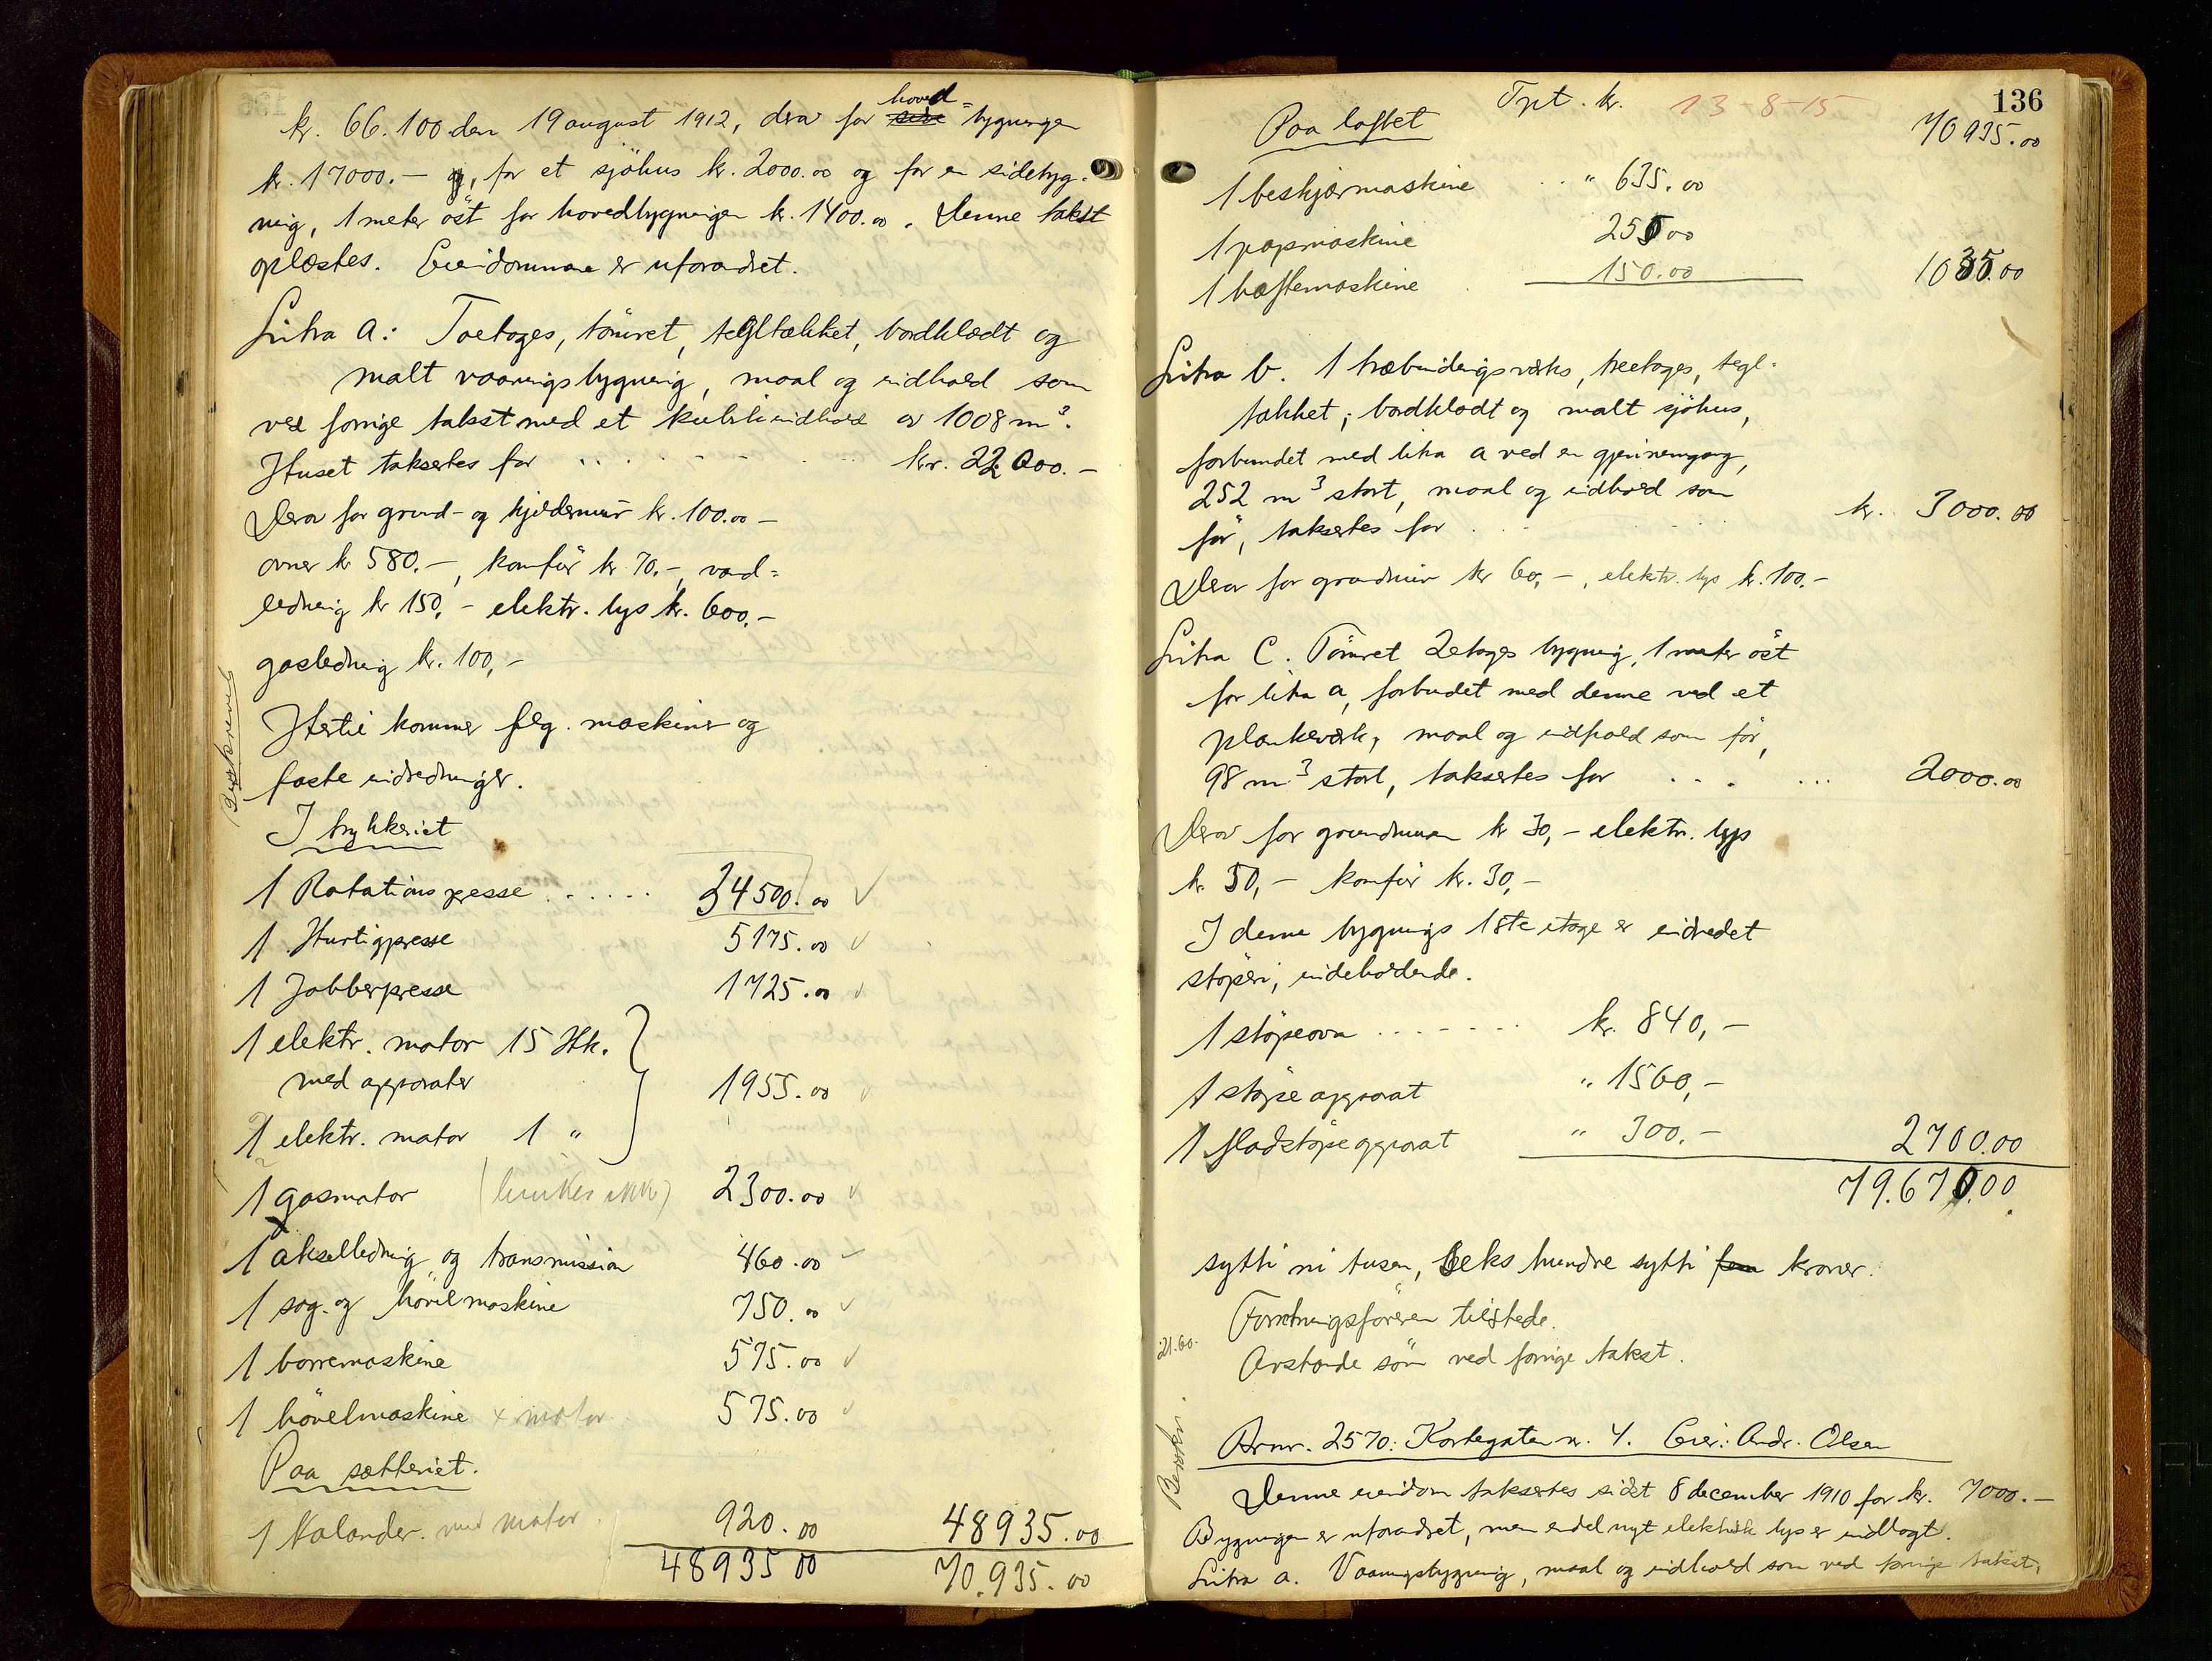 kr. 66.100 den 19 august 1912, derav for hoved=bygningen
kr. 17000.— og, for et sjöhus kr. 2000.00 og for en sidebyg=
ning, 1 meter öst for hovedbygningen kr. 1400.00. Denne takst
oplæstes. Eiendommen er uforandret.
Litra A: Toetages, tömret, tegltækket, bordklædt og
malt vaaningsbygning, maal og indhold som
ved forrige takst med et kubikindhold av 1008 m³.
Huset taksertes for kr. 22.000.—
Derav for grund- og kjeldermur kr. 100.00 —
ovner kr 580.—, komfür kr 70.—, vand=
ledning kr 150,— elektr. lys kr. 600,—
gasledning kr. 100,—
Hertil kommer følg. maskiner og
faste indredninger.
Beskrevet
I trykkeriet
1 Rotationspresse ..... 34500.00 ✓
1 Hurtigpresse 5175.00 ✓
1 Jobberpresse 1725.00 ✓
1 elektr. motor 15 Hk.
med apparater 1955.00 ✓
1 elektr. motor 1 "
1 gasmotor (brukes ikke) 2300.00 ✓
1 akselledning og transmission 460.00 ✓
1 sag- og hövelmaskine 750.00 ✓
1 borremaskine 575.00 ✓
1 hövelmaskine x motor 575.00 ✓
Paa sætteriet.
1 Kalander. med motor. 920.00 48935.00
48935 00 70.935.00
136
Tpt. kr. 13-8-15 70935.00
Paa loftet
1 beskjærmaskine " 635.00
1 papmaskine 250 00
1 hæftemaskine 150.00 1035.00
Litra b. 1 træbindingsværks, treetages, tegl-
takket, bordklædt og malt sjöhus,
forbundet med litra a ved en gjennemgang,
252 m³ stort, maal og indhold som
för, taksertes for kr. 3000.00
Derav for grundmur kr 60,—, elektr. lys kr. 100.—
Litra C. Tömret 2etages bygning, 1 meter öst
for litra a, forbudet med denne ved et
plankeværk, maal og indhold som för,
98 m³ stort, taksertes for ... 2000.00
Derav for grundmuren kr 30,— elektr. lys
kr. 50,— komfür kr. 30,—
I denne bygnings 1ste etage er indredet
støperi, indeholdende.
1 støpeovn ....... kr. 840,—
1 støpeapparat " 1560,—
1 fladstøpeapparat " 300.— 2700.00
79.670.00
sytti ni tusen, seks hundre sytti fem kroner.
Forretningsföreren tilstede.
21.60.
Avstande som ved forrige takst.
Brnr. 2570: Kortegaten nr. 4. Eier: Andr. Olsen
Denne eiendom taksertes sidst 8 december 1910 for kr. 7000.—
Bygningen er uforandret, men endel nyt elektrisk lys er indlagt.
Litra a. Vaaningsbygning, maal og indhold som ved forrige takst,